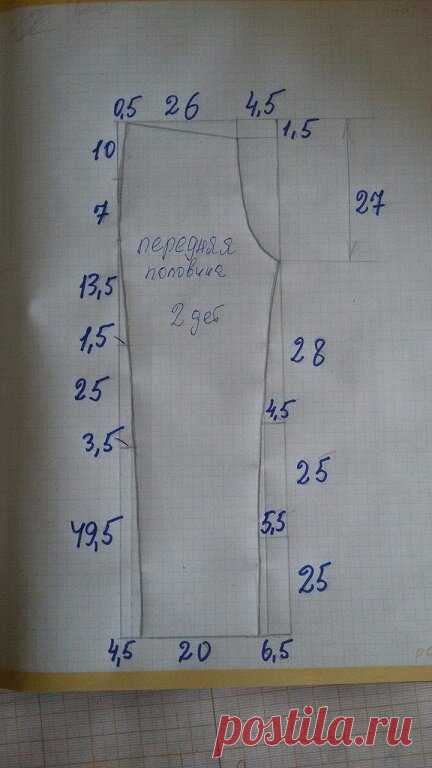 0,5 26 4,5
1,5
10
7
27
передняя
половина
13,5
2 дет
1,5
28
25
4,5
3,5
25
49,5
5,5
25
4,5 20 6,5
postila.ru